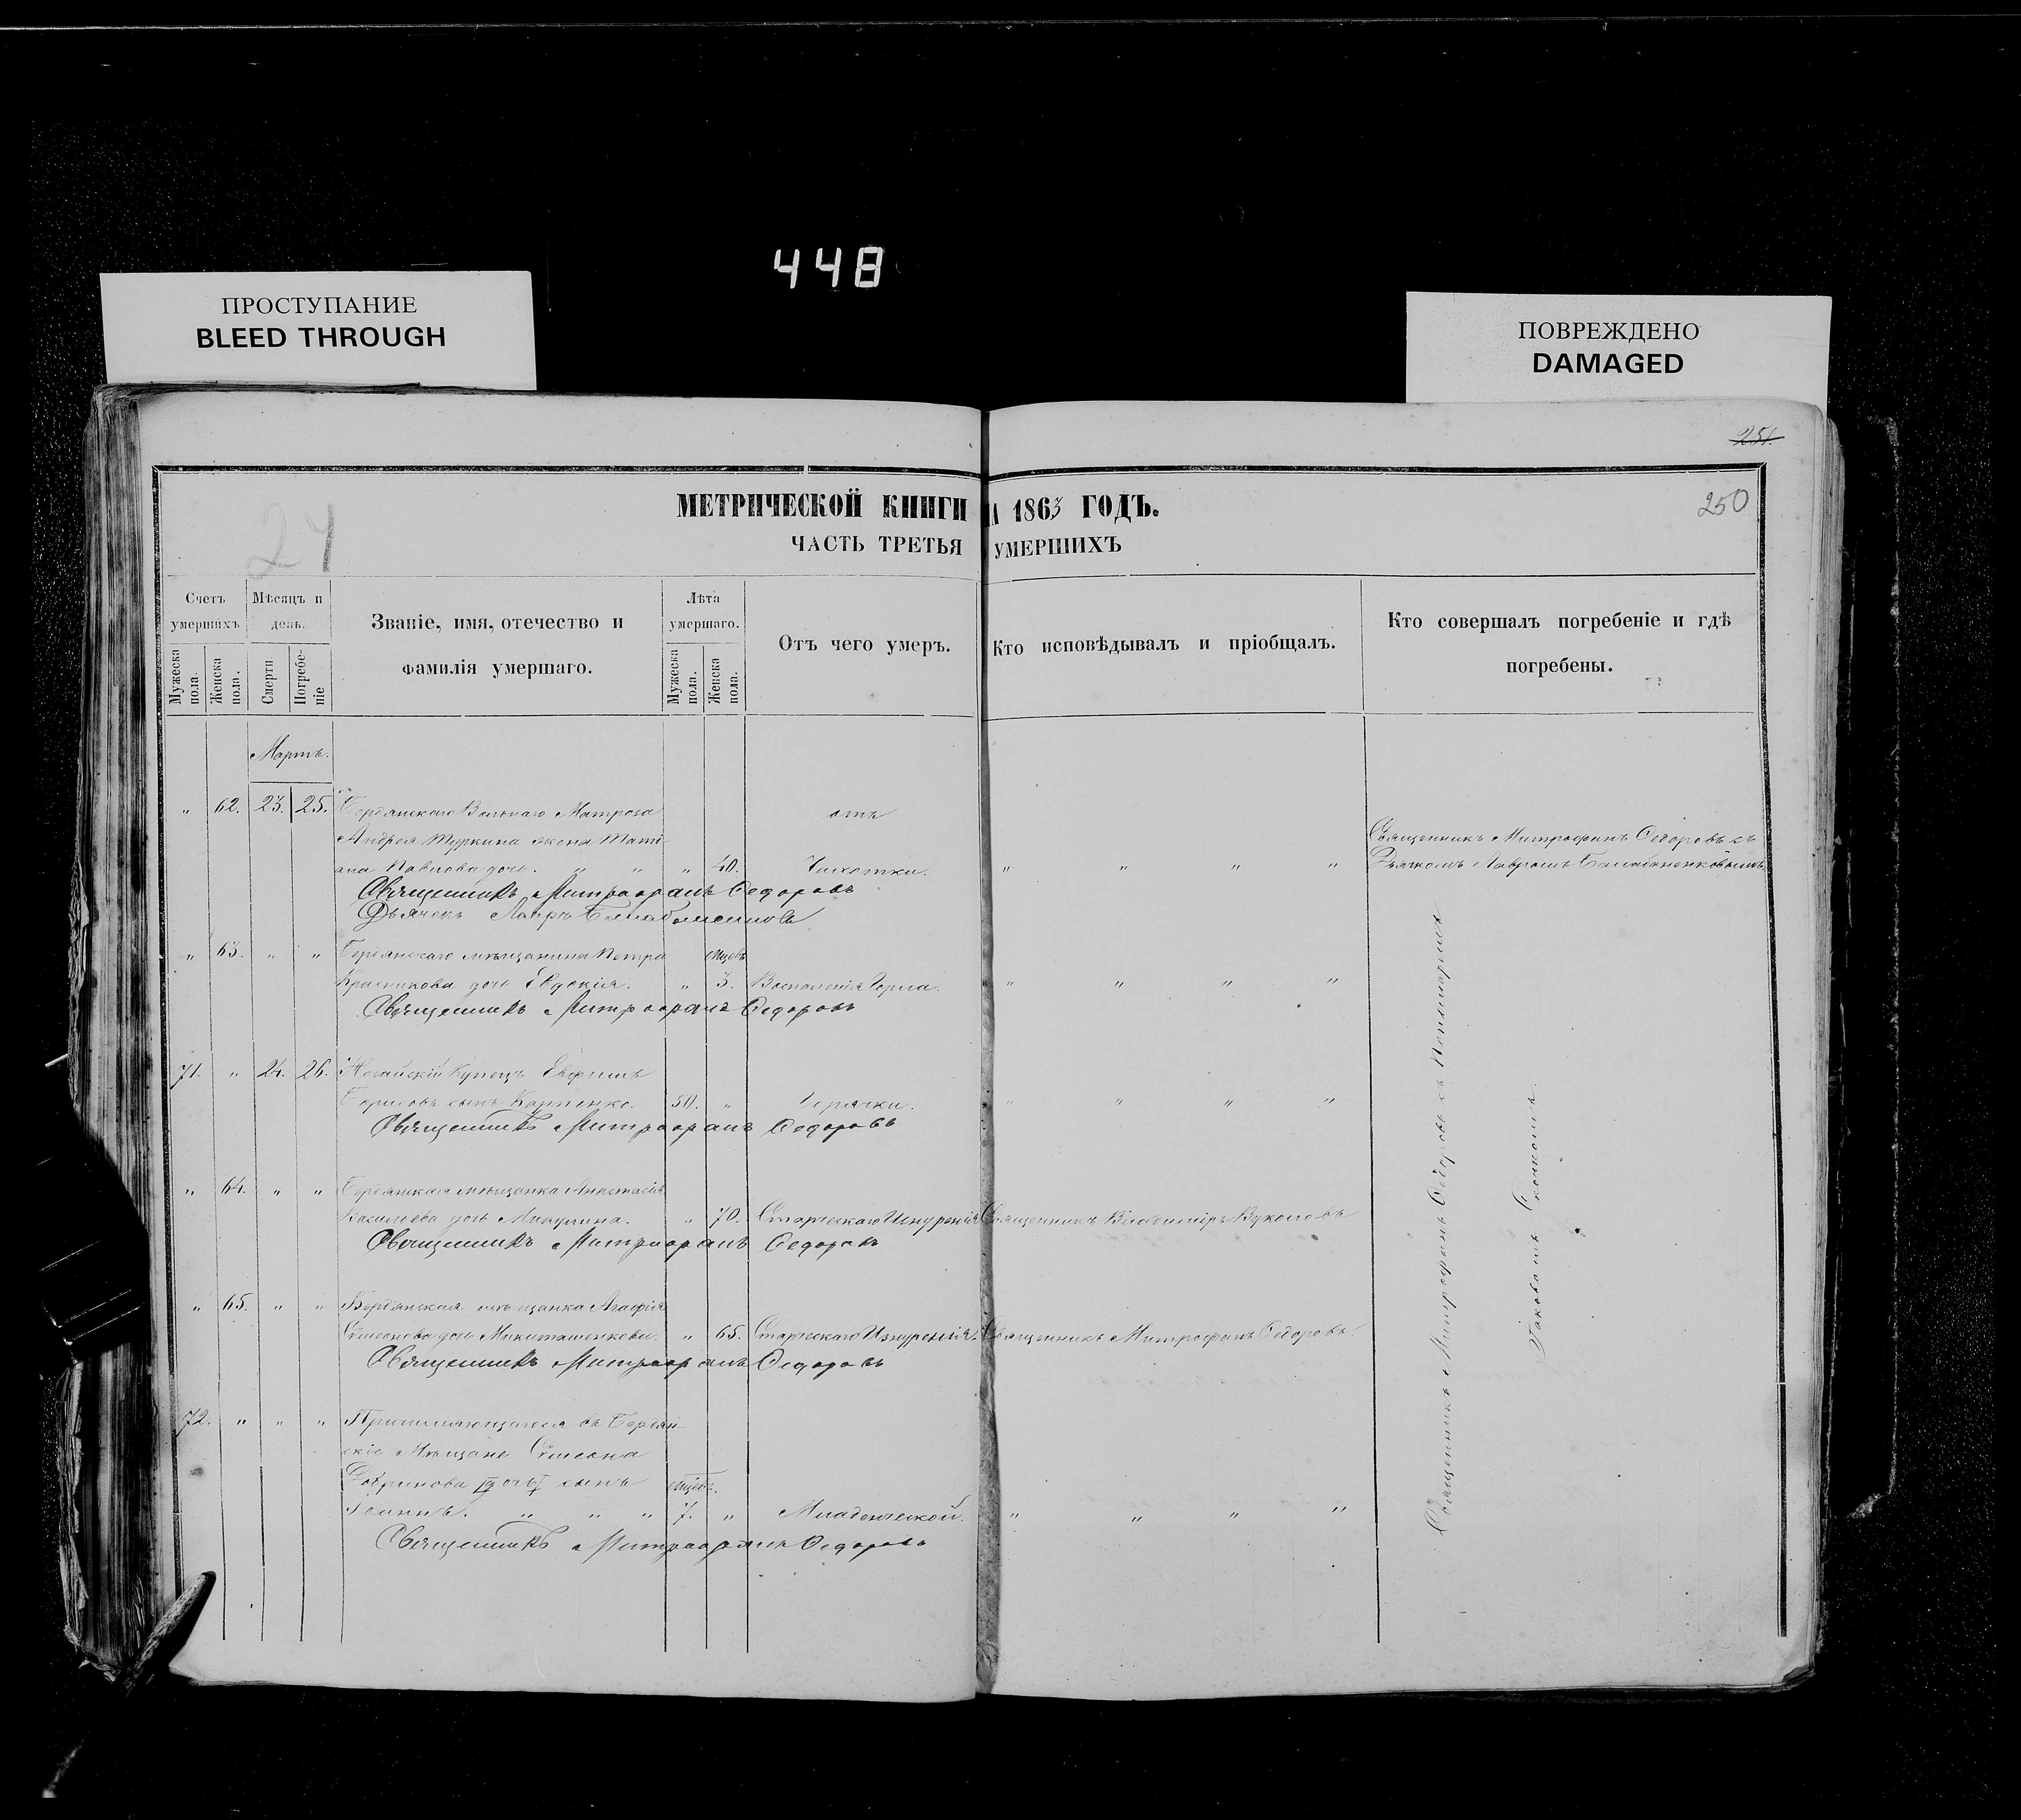 448
ПРОСТУПАНИЕ
BLEED THROUGH
ПОВРЕЖДЕНО
DAMAGED
251.
250
24
МЕТРИЧЕСКОЙ КНИГИ А 1863 ГОДЪ.
ЧАСТЬ ТРЕТЬЯ УМЕРШИХЪ
Счетъ умершихъ
Мужеска пола.
Женска пола.
Мѣсяцъ и день.
Смерти
Погребеніе
Званіе, имя, отечество и
фамилія умершаго.
Лѣта умершаго.
Мужеска пола.
Женска пола.
Отъ чего умеръ.
Кто исповѣдывалъ и пріобщалъ.
Кто совершалъ погребеніе и гдѣ
погребены.
Мартъ.
" 62. 23. 25. Бердянскаго Вольнаго Матроза отъ
Андрея Туркина жена Тати- Священникъ Митрофанъ Ѳедоровъ съ
ана Павлова дочь. " " " 40. Чахотки. " " " " Дьякомъ Лавромъ Балабаненковымъ
Священникъ Митрофанъ Ѳедоровъ
Дьячекъ Лавръ Балабаненковъ
" 63. " " Бердянскаго мѣщанина Петра мѣсяцъ
Красникова дочь Евдокія. " 3. Воспаленія Горла. " " " "
Священникъ Митрофанъ Ѳедоровъ
71. " 24. 26. Ногайскій Купецъ Евфимъ
Борисовъ сынъ Карпенко. 50. " Горячки. " " " "
Священникъ Митрофанъ Ѳедоровъ
" 64. " " Бердянская мѣщанка Анастасія
Васильева дочь Микулина. " 70. Старческаго Изнуренія Священникъ Владиміръ Вуколовъ
Священникъ Митрофанъ Ѳедоровъ
" 65. " " Бердянская мѣщанка Агафія
Симеонова дочь Микиташенкова. " 65. Старческаго Изнуренія. Священникъ Митрофанъ Ѳедоровъ.
Священникъ Митрофанъ Ѳедоровъ
72. " " " Причисляющагося въ Бердян-
скіе Мѣщане Симеона
сынъ
Іоаннъ. " " " 7. " Младенческой. " " " "
Священникъ Митрофанъ Ѳедоровъ
Священникъ Митрофанъ Ѳедоровъ съ Пономаремъ
Іаковомъ